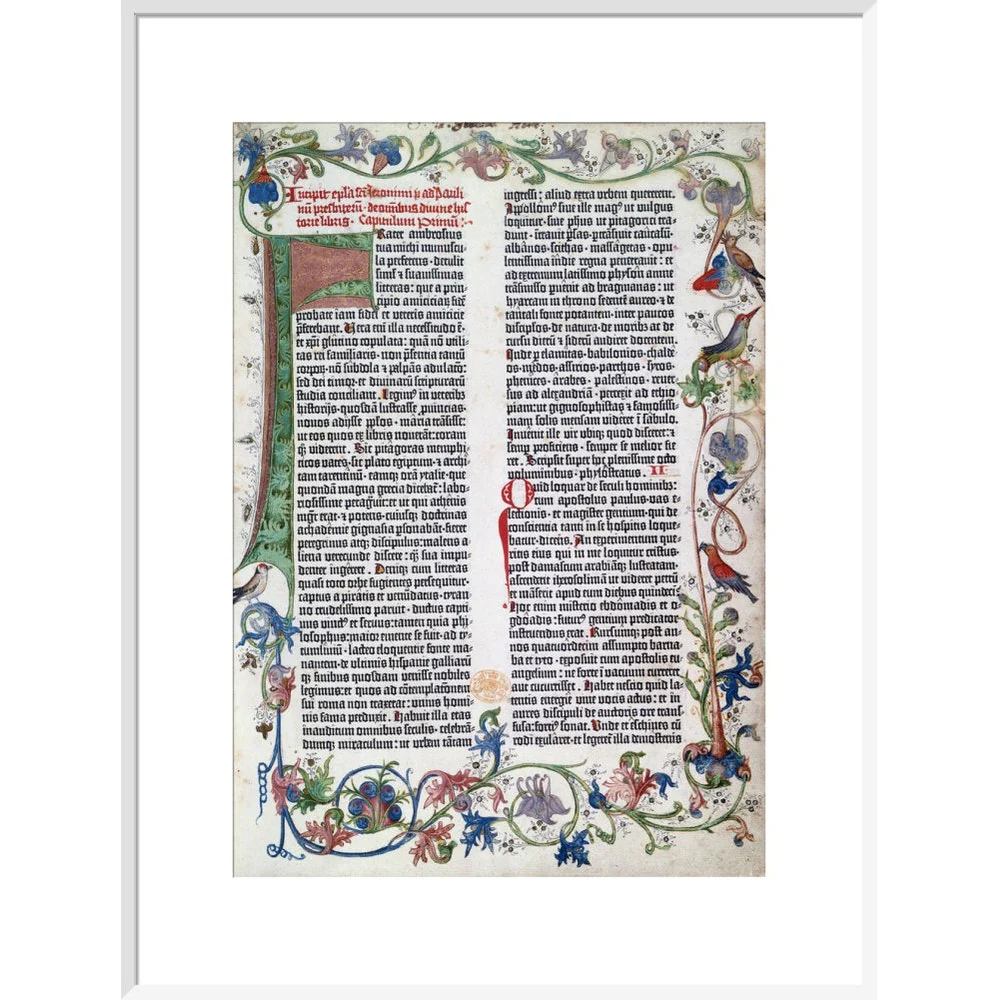 Incipit epl̃a sc̃i Jeronimi p̃ ad Pauli
nũ presbiterũ · de omnibus divine his
torie libris · Capitulum Primũ:-
FRater ambrosius
tua michi munuscu-
la preferens · detulit
simľ ⁊ suavissimas
litteras: que a prin-
cipio amiciciaꝝ fidẽ
probate iam fidei ⁊ veteris amicicie
p̃ferebant. Vera eni illa necessitudo ẽ·
et xp̃i glutino copulata: quam nõ utili-
tas rei familiaris · non p̃sentia tantũ
corpoꝝ · nõ subdola ⁊ palpãs adulatõ·
sed dei timoꝝ · et divinarũ scripturarũ
studia conciliant. Legimꝰ in veteribꝫ
historijs · quosdam lustrasse ꝓvincias ·
novos adijsse pꝓlos · maria trãsisse:
ut eos quos ex libris noverãt: coram
qꝫ viderent. Sic pitagoras memphi-
ticos vates· sic plato egiptum · ⁊ archi-
tam tarentinũ · eamqꝫ oram ytalie · que
quondã magna grecia dicebat̃: labo-
riosissime peragrit: et ut qui athenis
mgr̃ erat · ⁊ potens · cuiusqꝫ doctrinas
achademie gignasia ꝑsonabãt· fieret
peregrinus atqꝫ discipulus: malens a-
liena verecunde discere: qꝫ sua impu-
denter ingerere. Deniqꝫ cum litteras
quasi toto orbe fugientes persequitur·
captus a piratis et venũdatus · tyran-
no crudelissimo paruit · ductus capti-
vus vinctꝰ et servus: tamen quia phi-
losophus: maior emente se fuit · ad ty-
tumliviũ · lacteo eloquentie fonte ma-
nantem · de ultimis hispanie galliarũ
qꝫ finibus quosdam venisse nobiles
legimus: et quos ad cõtemplatõnem
sui roma non traxerat: unius homi-
nis fama perduxit. Habuit illa etas
inauditum omnibus seculis · celebrã-
dumqꝫ miraculum: ut urbem tãtam
ingressi: aliud extra urbem quererent.
Apolloniꝰ sive ille magꝰ ut vulgus
loquitur· sive phꝰs ut pitagorici tra-
dunt · intravit ꝑsas · ꝑtrãsivit caucasũ·
albãnos · scithas · massagetas · opu-
lentissima indie regna penetravit: et
ad extremum latissimo physon amne
trãsmisso ꝑvenit ad bragmanas: ut
hyarcam in throno sedentẽ aureo · ⁊ de
tantali fonte potantem · inter paucos
discipulos · de natura· de moribꝫ ac de
cursu dierũ ⁊ siderũ audiret docentem.
Inde ꝑ elamitas · babilonios · chalde-
os · medos · assirios · parthos · syros·
phenices · arabes · palestinos · rever-
sus ad alexandriã · perrexit ad ethio-
piam: ut gignosophistas ⁊ famosissi-
mam solis mensam videret ĩ sabulo.
Invenit ille vir ubiqꝫ quod disceret: ⁊
semp̱ proficiens · semper se melior fie-
ret. Scripsit super hoc plenissime octo
voluminibus · phylostratus. II
Quid loquar de seculi hominibꝫ:
cum apostolus paulus · vas e-
lectionis · et magister gentium · qui de
conscientia tanti in se hospitis loque-
batur· dicens. An experimentum que-
ritis eius qui in me loquitur cristus·
post damascum arabiãqꝫ lustratam·
ascenderit iherosolimã ut videret petrũ
et mãserit apud eum diebus quindeci.
Hoc enim misterio ebdomadis et o-
gdoadis: futurꝰ gentium predicator
instruendus erat. Rursumqꝫ post an-
nos quatuordecim assumpto barna-
ba et tyto · exposuit cum apostolis eu-
angelium: ne forte ĩ vacuum curreret
aut cucurrisset. Habet nescio quid la-
tentis energie vive vocis actus: et in
aures discipuli de auctoris ore trans-
fusa: fortiꝰ sonat. Unde et eschines cũ
rodi exularet · et legeret illa demostenis